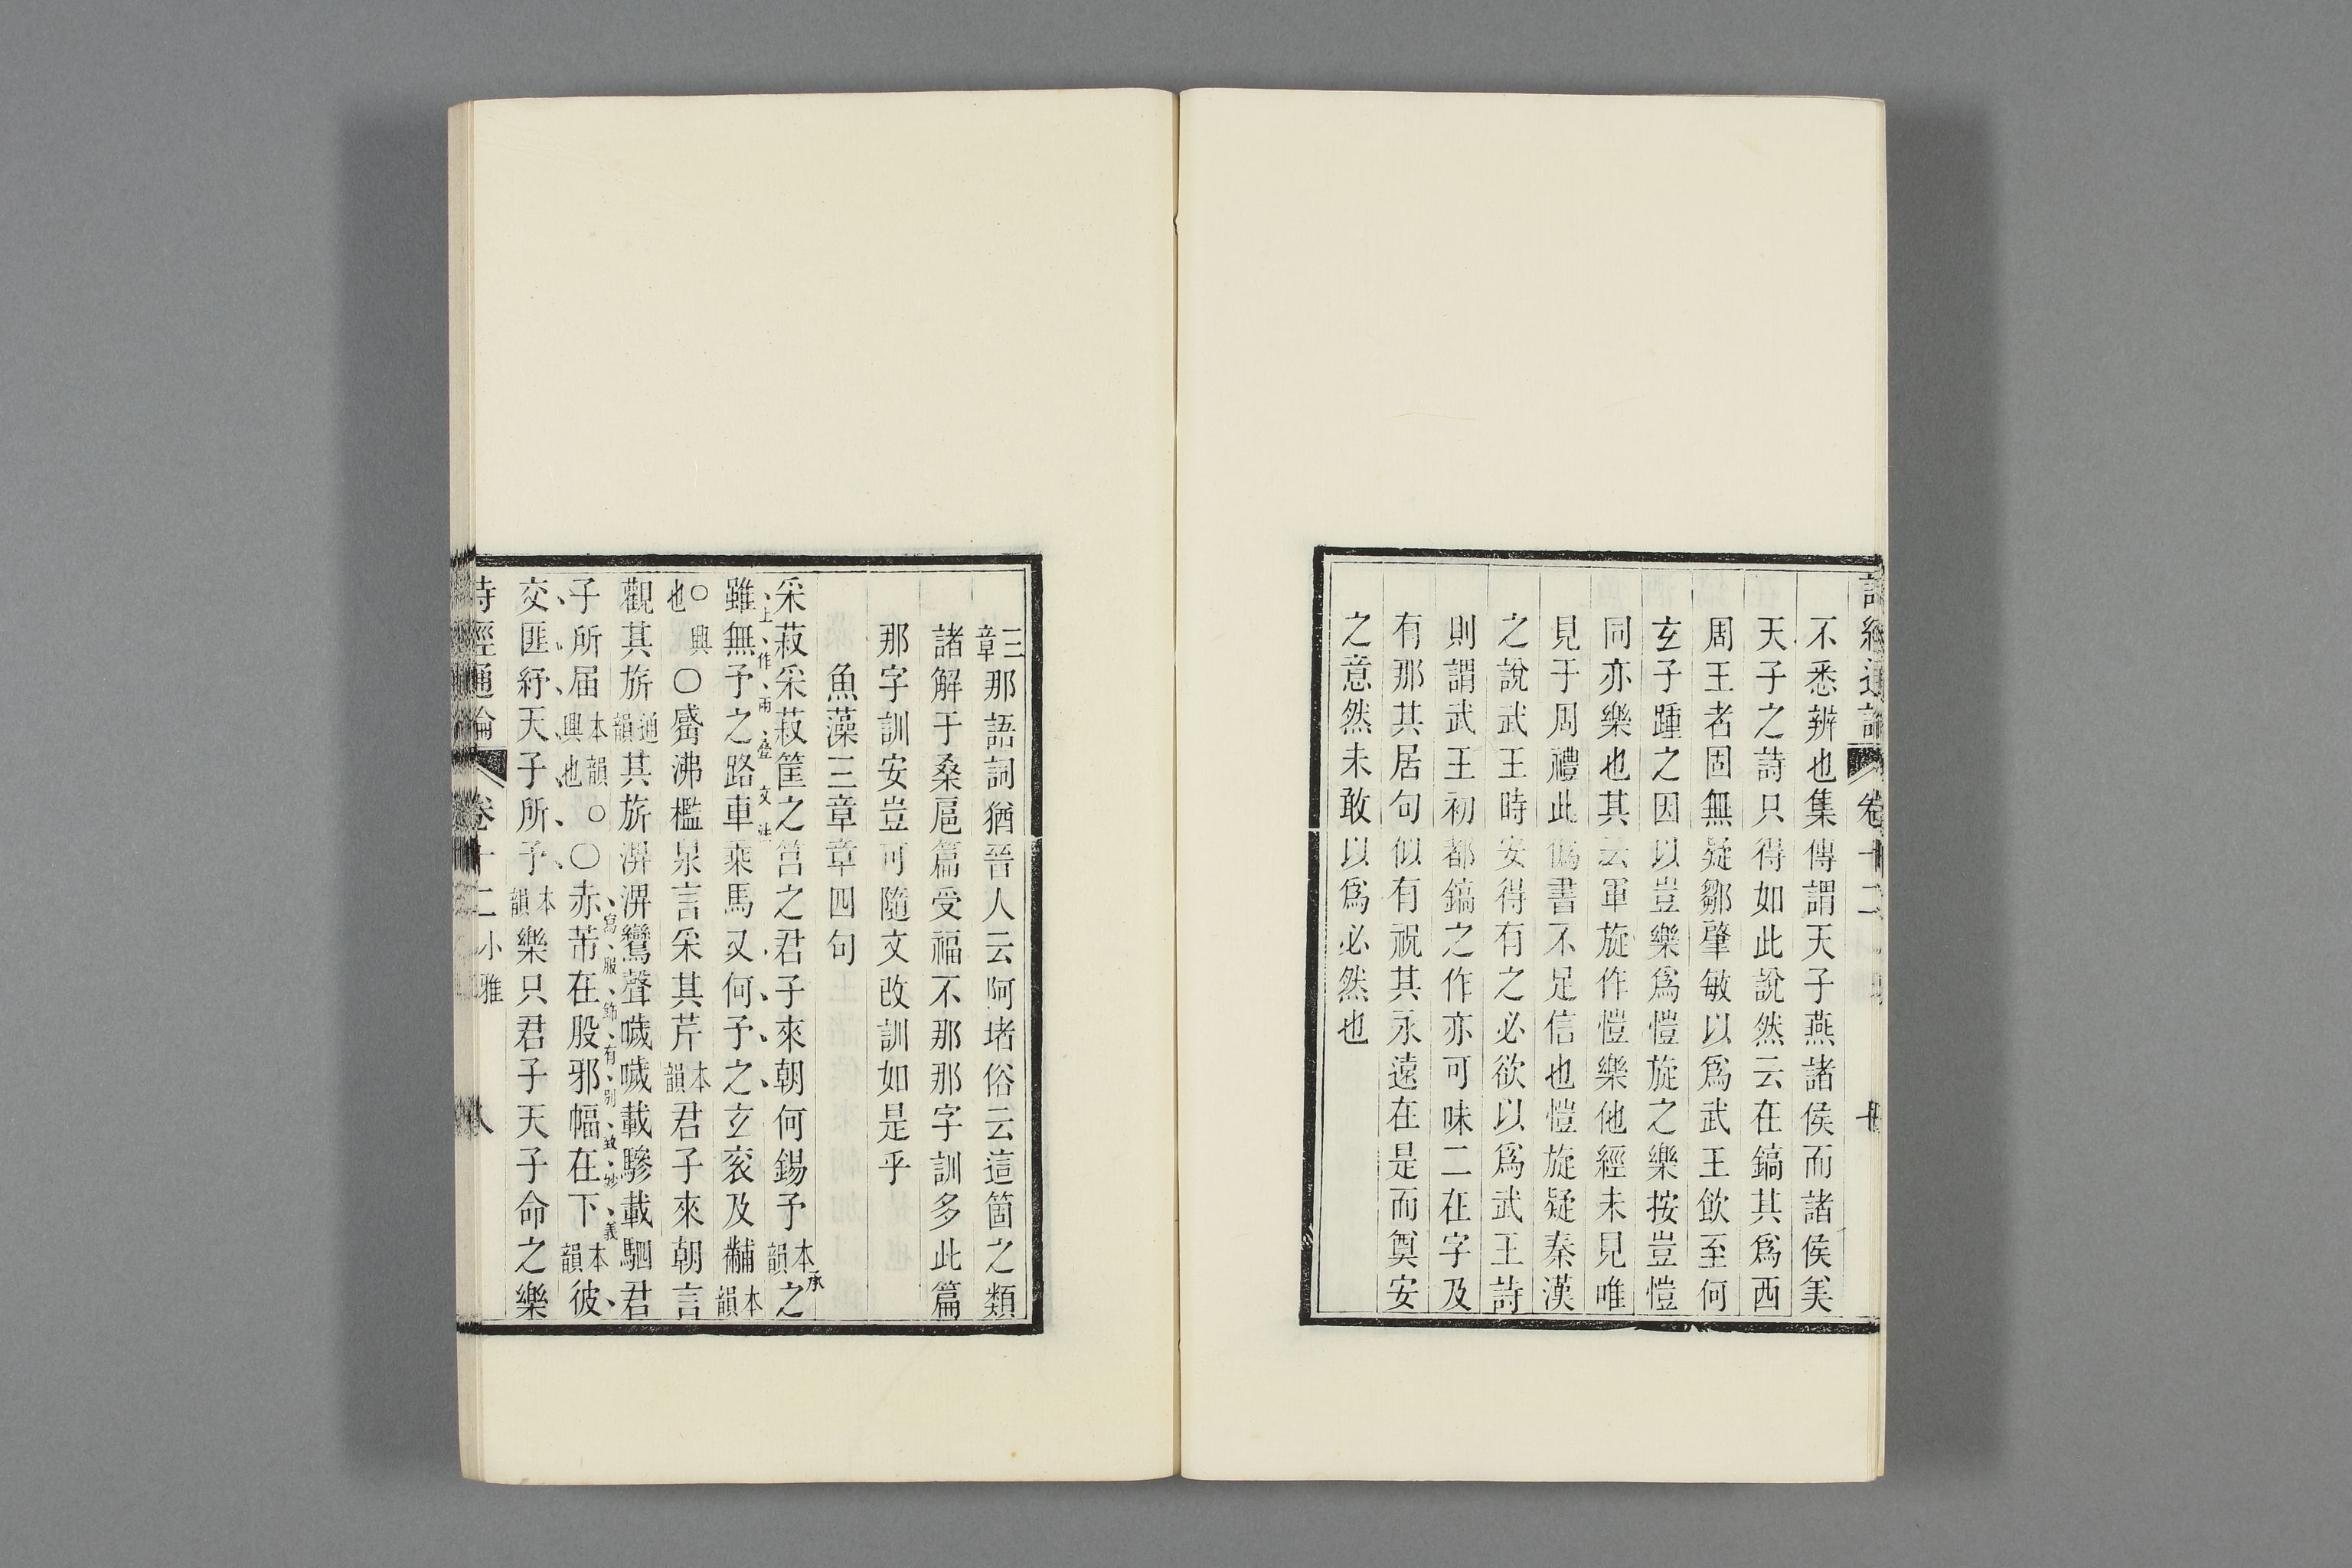 詩經通論 卷十二
不悉辨也集傳謂天子燕諸侯而諸侯美
天子之詩只得如此說然云在鎬其爲西
周王者固無疑鄒肇敏以爲武王飲至何
玄子踵之因以豈樂爲愷旋之樂按豈愷
同亦樂也其云軍旋作愷樂他經未見唯
見于周禮此僞書不足信也愷旋疑秦漢
之說武王時安得有之必欲以爲武王詩
則謂武王初都鎬之作亦可味二在字及
有那其居句似有祝其永遠在是而奠安
之意然未敢以爲必然也
三章那語詞猶晉人云阿堵俗云這箇之類
諸解于桑扈篇受福不那那字訓多此篇
那字訓安豈可隨文改訓如是乎
魚藻三章章四句
采菽采菽筐之筥之君子來朝何錫予本韻之承
上作兩疊文法
雖無予之路車乘馬又何予之玄衮及黼本韻
○興也○觱沸檻泉言采其芹本韻君子來朝言
觀其旂通韻其旂淠淠鸞聲嘒嘒載驂載駟君
寫服飾有別致妙義
子所屆本韻興也○○赤芾在股邪幅在下本韻彼
交匪紓天子所予本韻樂只君子天子命之樂
詩經通論 卷十二 小雅 八